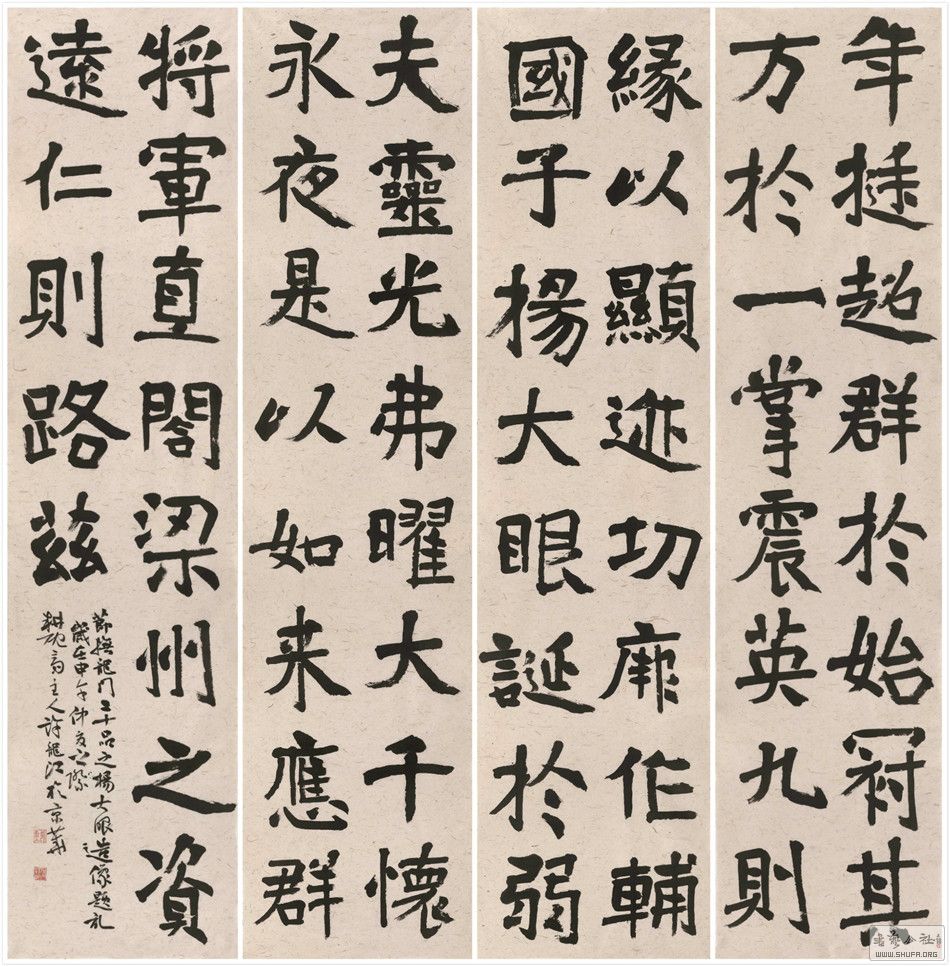 年挺超群於始冠其
方於一掌震英九則
緣以顯迹功厥作輔
國子揚大眼誕於弱
夫靈光弗曜大千懷
永夜是以如来應群
將軍直閤梁州之資
遠仁則路茲
節撫龍門二十品之揚大眼造像題記
歲壬申年仲夏之際
主人許龍江於京華
書藝公社
WWW.SHUFA.ORG